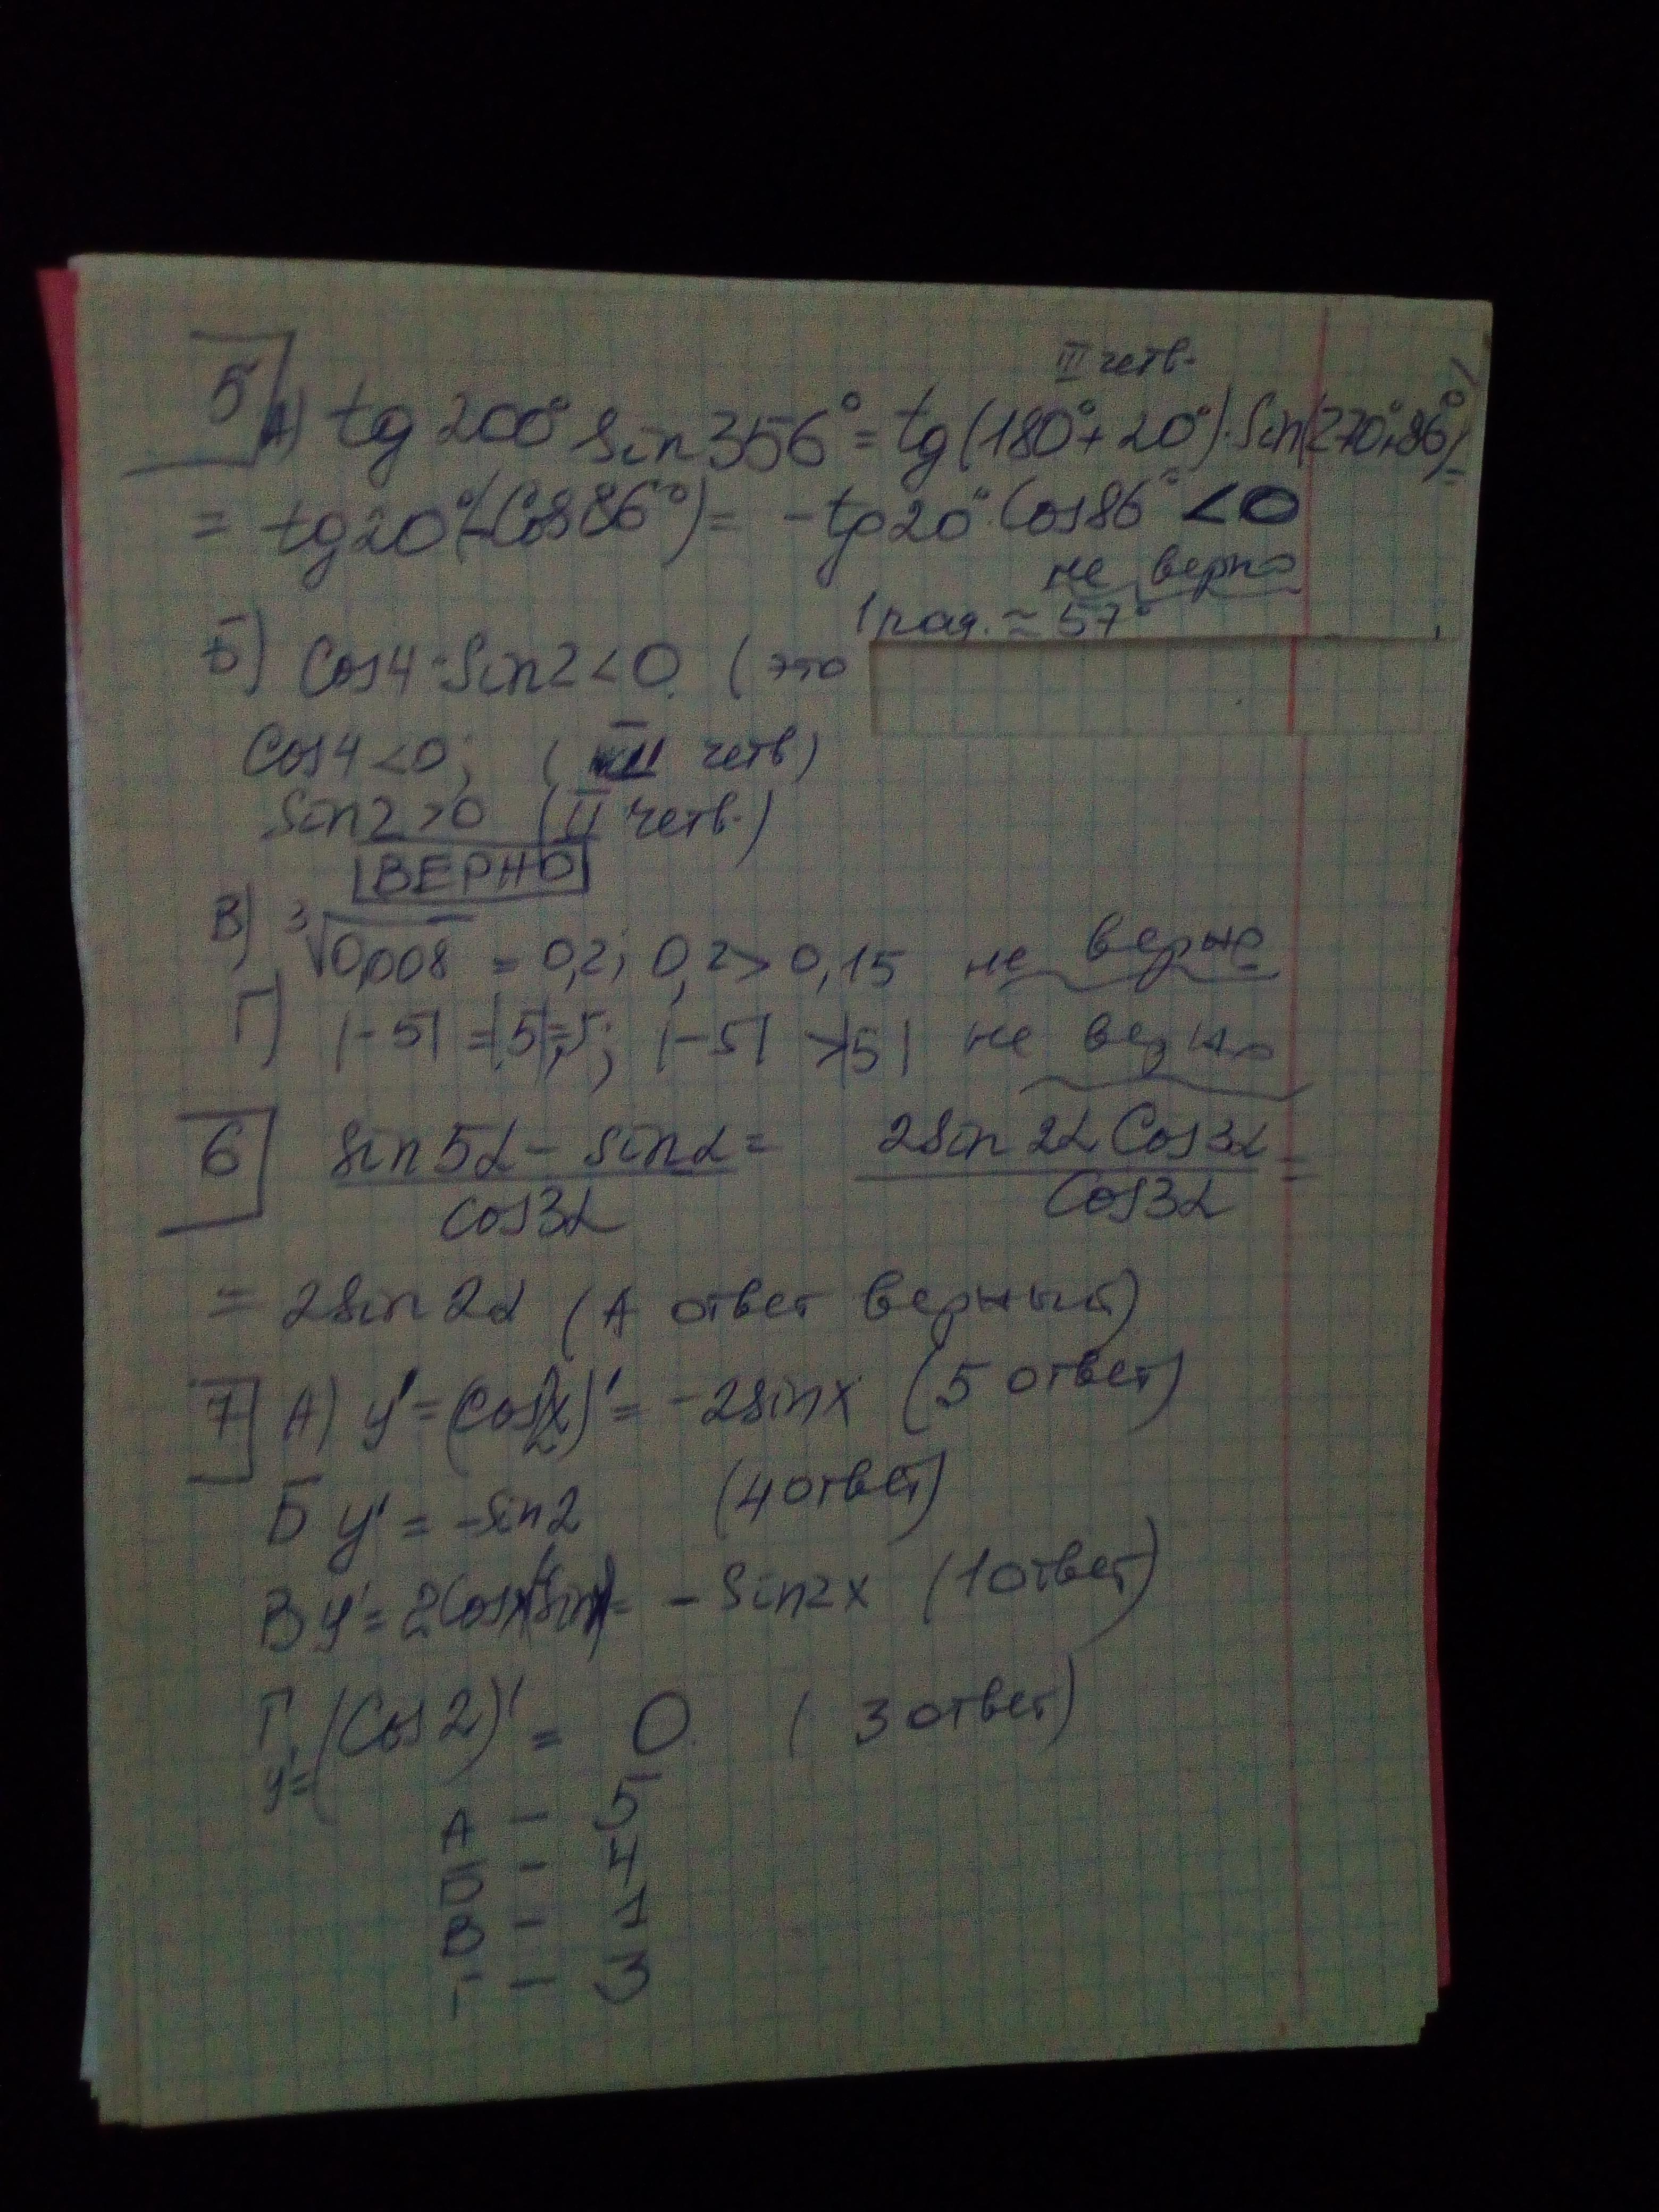 III четв.
5 А) tg 200° sin 356° = tg(180°+20°)·Sin(270°+86°)=
= tg20°(-Cos86°) = -tg20°·Cos86° < 0
не верно
1 рад. ≈ 57°
Б) Cos4·Sin2<0. (это
Cos4<0; (III четв)
Sin2>0 (II четв.)
ВЕРНО
В) ∛0,008 = 0,2; 0,2 > 0,15 не верно
Г) |-5| = |5|=5; |-5| >|5| не верно
6 (sin5α - sinα)/cos3α = (2sin2α Cos3α)/Cos3α =
= 2sin2α (А ответ верный)
7 А) y' = (cosx·2)' = -2sinx (5 ответ)
Б y' = -sin2 (4 ответ)
В y' = 2Cosx(-sinx) = - Sin2x (1 ответ)
Г. y'=(Cos2)' = 0. (3 ответ)
А - 5
Б - 4
В - 1
Г - 3